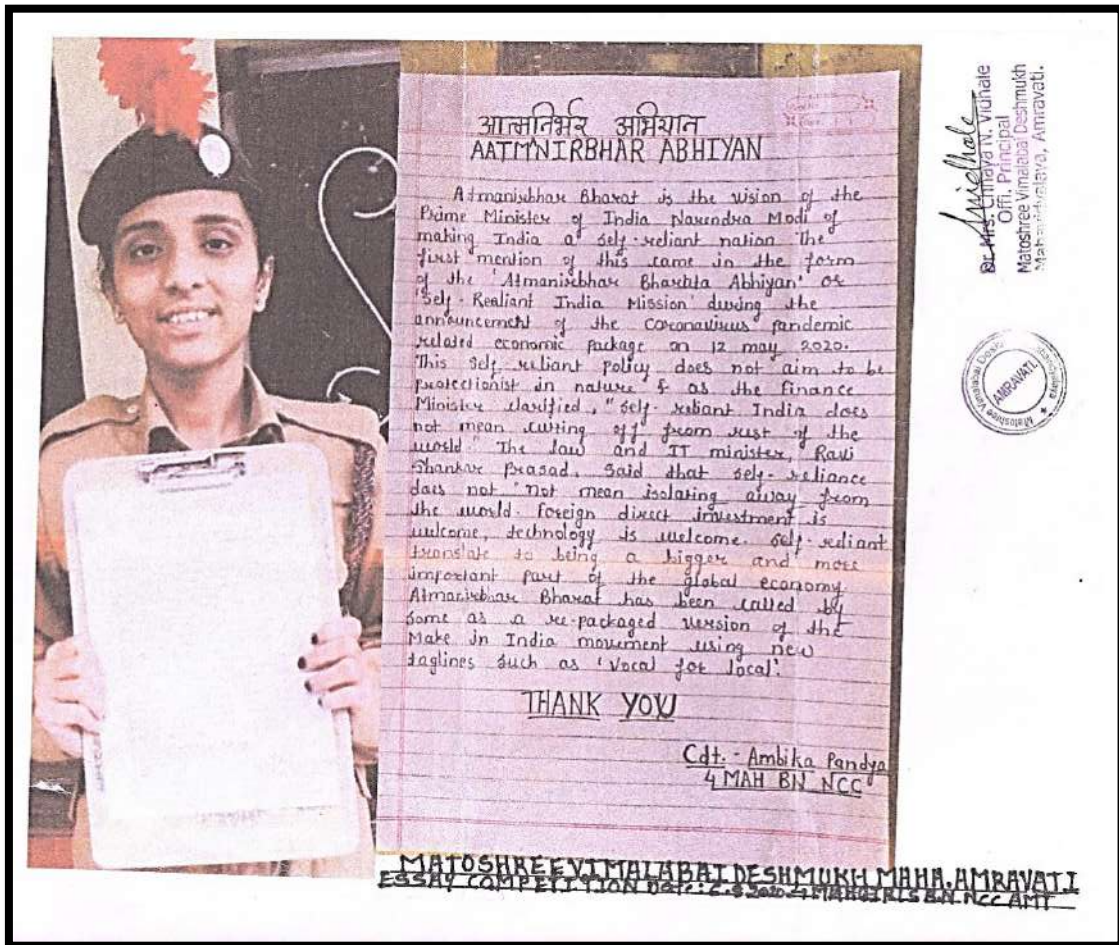 आत्मनिर्भर अभियान
AATM'NIRBHAR ABHIYAN
Atmanirbhar Bharat is the vision of the
Prime Minister of India Narendra Modi of
making India a self-reliant nation The
first mention of this came in the form
of the 'Atmanirbhar Bharta Abhiyan' or
'Self-Realiant India Mission' during the
announcement of the coronavirus pandemic
related economic package on 12 may 2020.
This self reliant policy does not aim to be
protectionist in nature & as the Finance
Minister clarified, "self-reliant India does
not mean cutting off from rest of the
world" The law and IT minister, Ravi
Shankar Prasad, Said that self-reliance
does not "not mean isolating away from
the world. Foreign direct investment is
welcome, technology is welcome. self-reliant
translate to being a bigger and more
important part of the global economy
Atmanirbhar Bharat has been called by
some as a re-packaged version of the
Make in India movement using new
taglines such as 'Vocal for local'.
THANK YOU
Cdt. - Ambika Pandya
4 MAH BN NCC
MATOSHREE VIMALABAI DESHMUKH MAHA. AMRAVATI
ESSAY COMPETITION Date: 2020 4 MAH GIRLS BN. NCC AMT
Dr. Mrs. Chhaya N. Vidhale
Offi. Principal
Matoshree Vimalabai Deshmukh
Mahavidyalaya, Amravati.
AMRAVATI